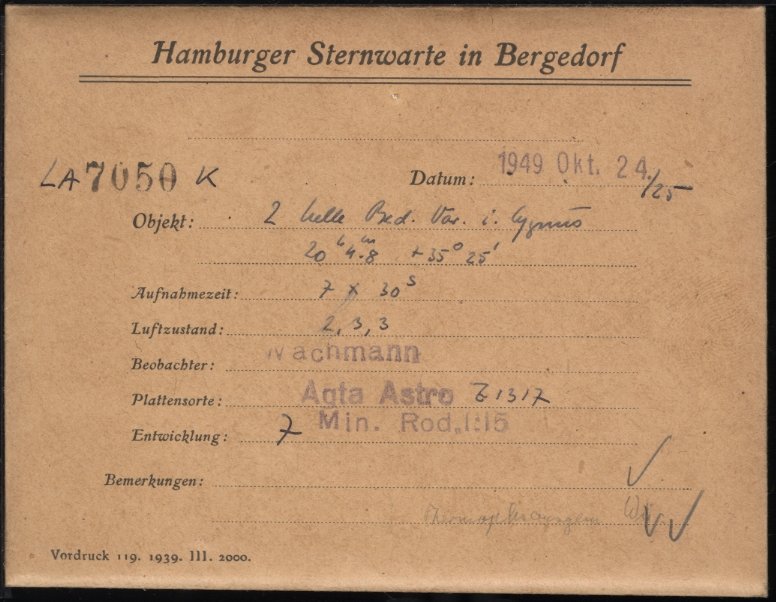 Hamburger Sternwarte in Bergedorf
LA 7050 K
Datum: 1949 Okt. 24./25
Objekt: 2 helle Bed. Var. i. Cygnus
20h 4m.8 +35° 25'
Aufnahmezeit: 7 x 30s
Luftzustand: 2, 3, 3
Beobachter: Wachmann
Plattensorte: Agfa Astro Z1317
Entwicklung: 7 Min. Rod. 1:15
Bemerkungen:
Vordruck 119. 1939. III. 2000.